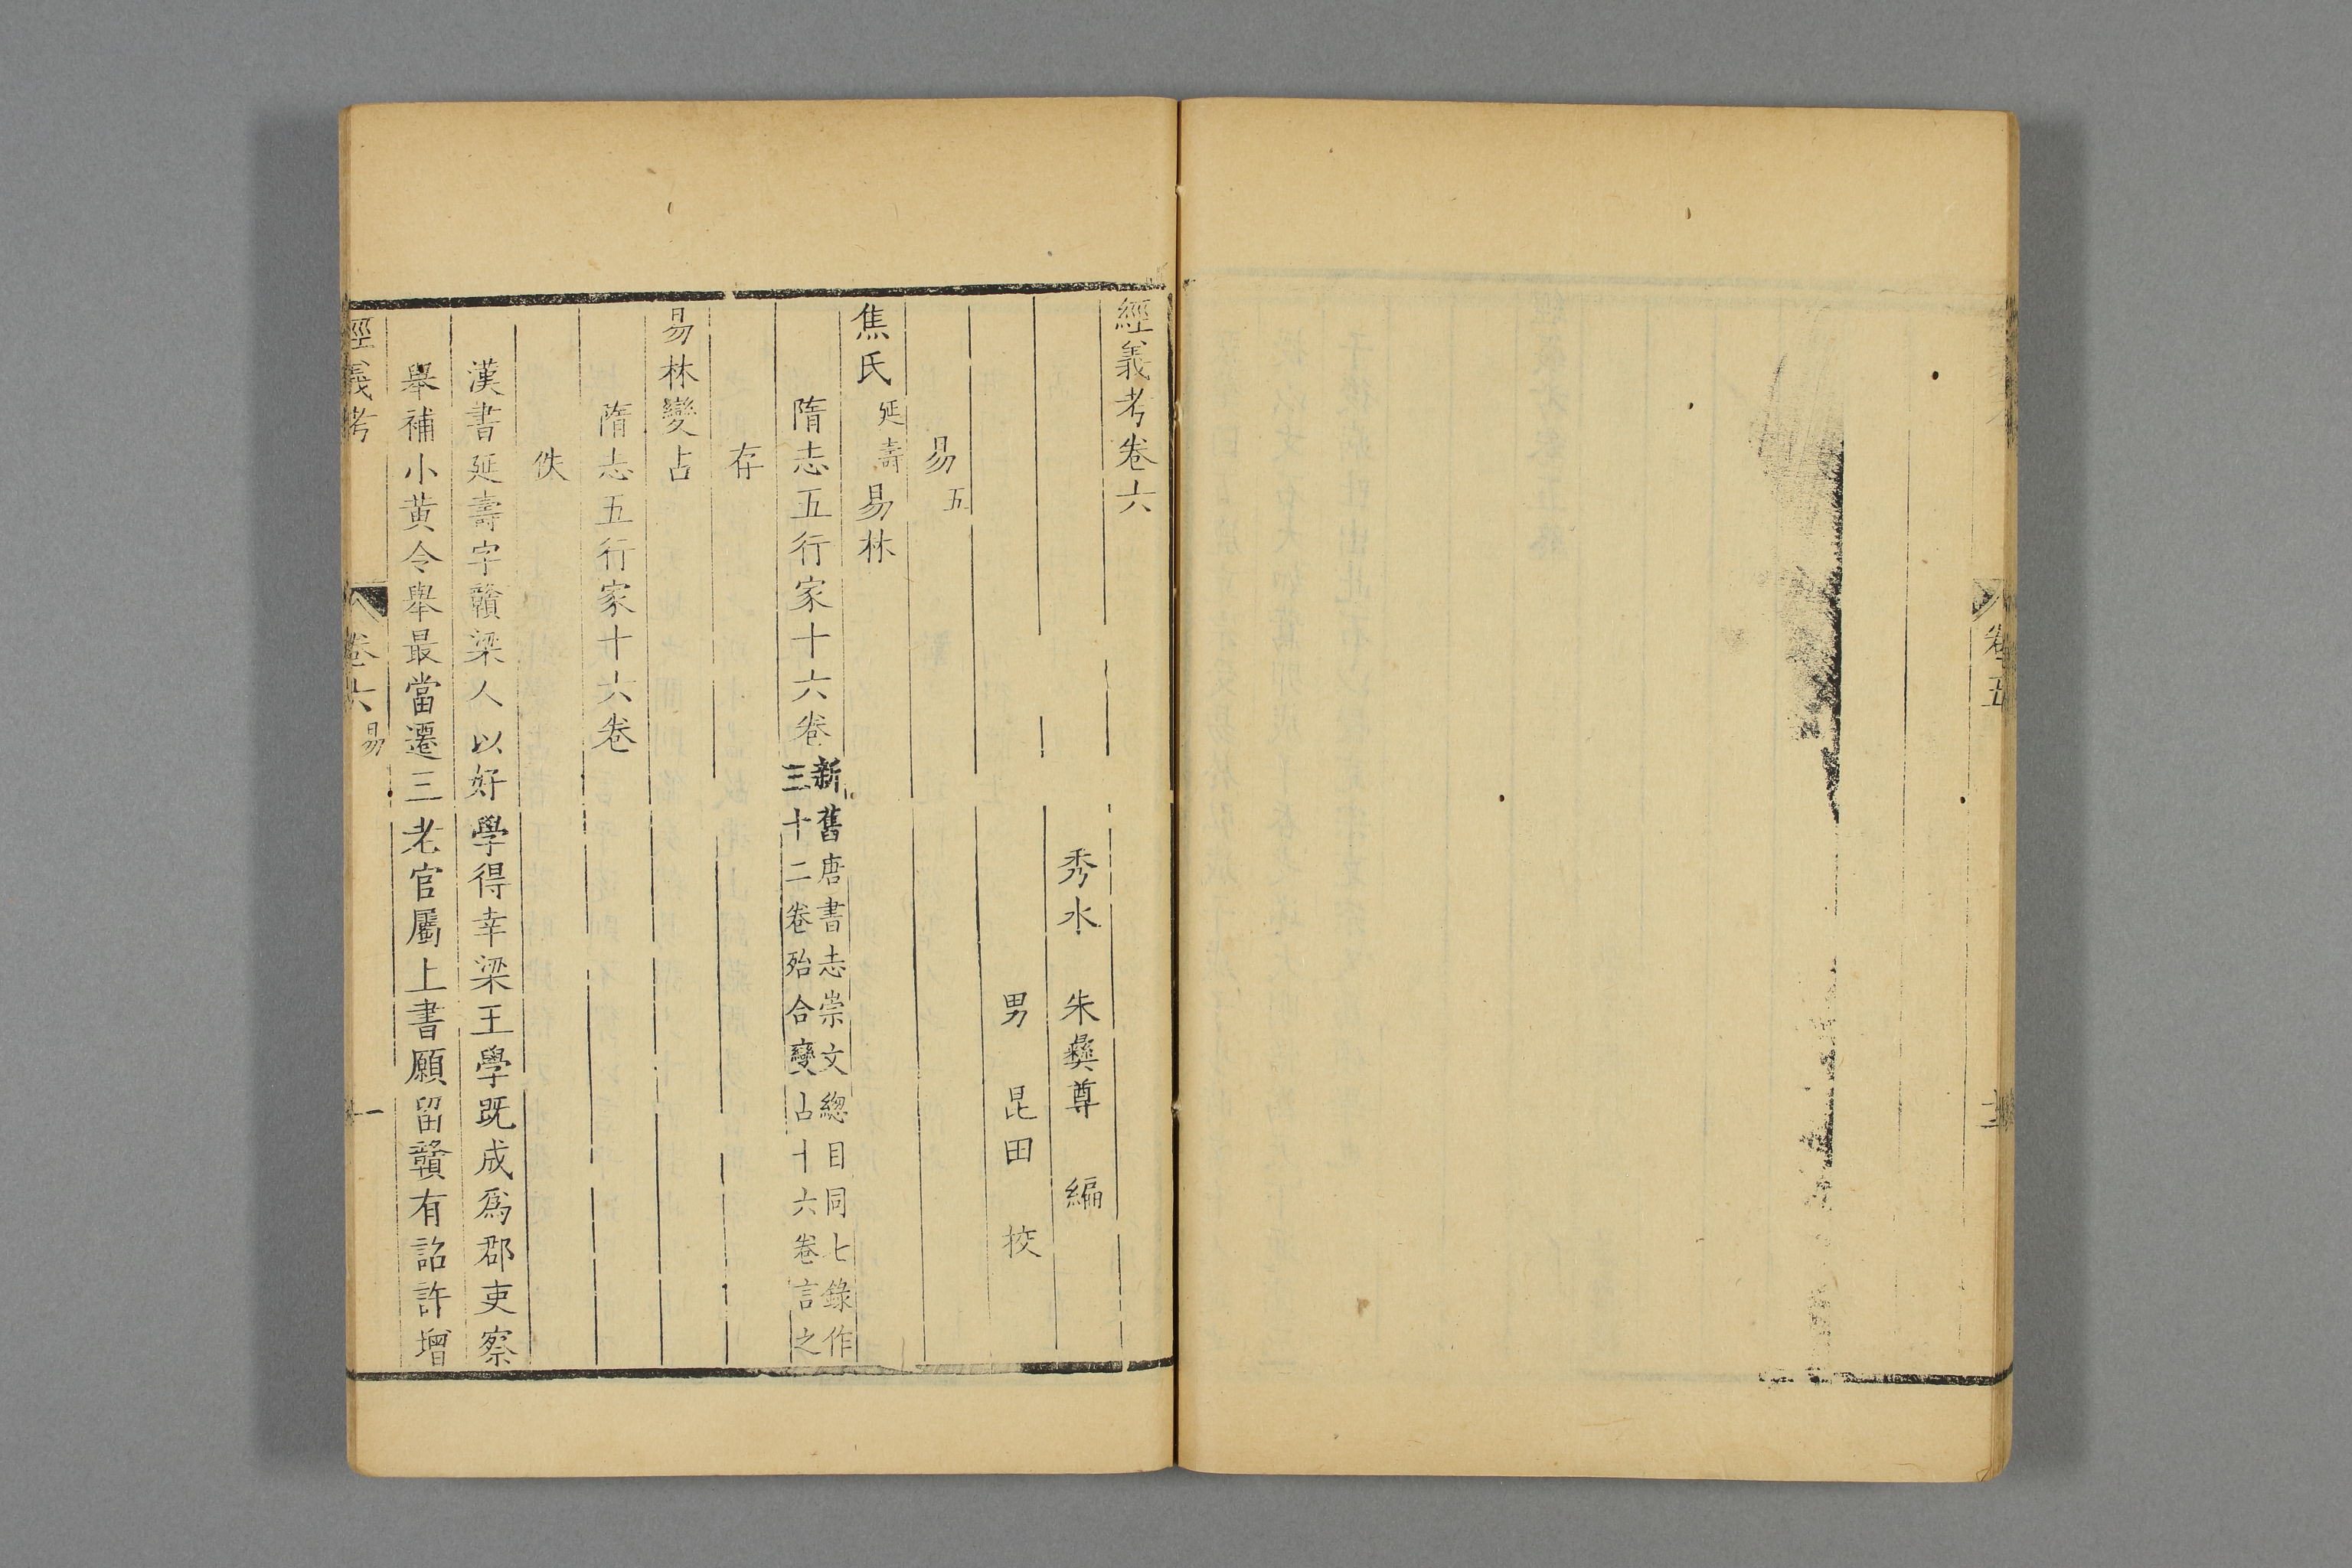 卷五
經義考卷六
秀水 朱彝尊 編
男 昆田 挍
易五
焦氏延壽易林
隋志五行家十六卷新舊唐書志崇文總目同七錄作
三十二卷殆合變占十六卷言之
存
易林變占
隋志五行家十六卷
佚
漢書延壽字贛梁人以好學得幸梁王學既成爲郡吏察
舉補小黄令舉最當遷三老官屬上書願留贛有詔許增
經義考 卷六易 一